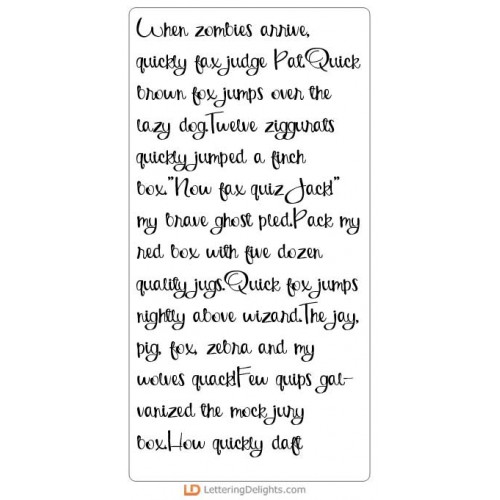 When zombies arrive,
quickly fax judge Pat.Quick
brown fox jumps over the
lazy dog.Twelve ziggurats
quickly jumped a finch
box."Now fax quiz Jack!"
my brave ghost pled.Pack my
red box with five dozen
quality jugs.Quick fox jumps
nightly above wizard.The jay,
pig, fox, zebra and my
wolves quack!Few quips gal-
vanized the mock jury
box.How quickly daft
LD LetteringDelights.com